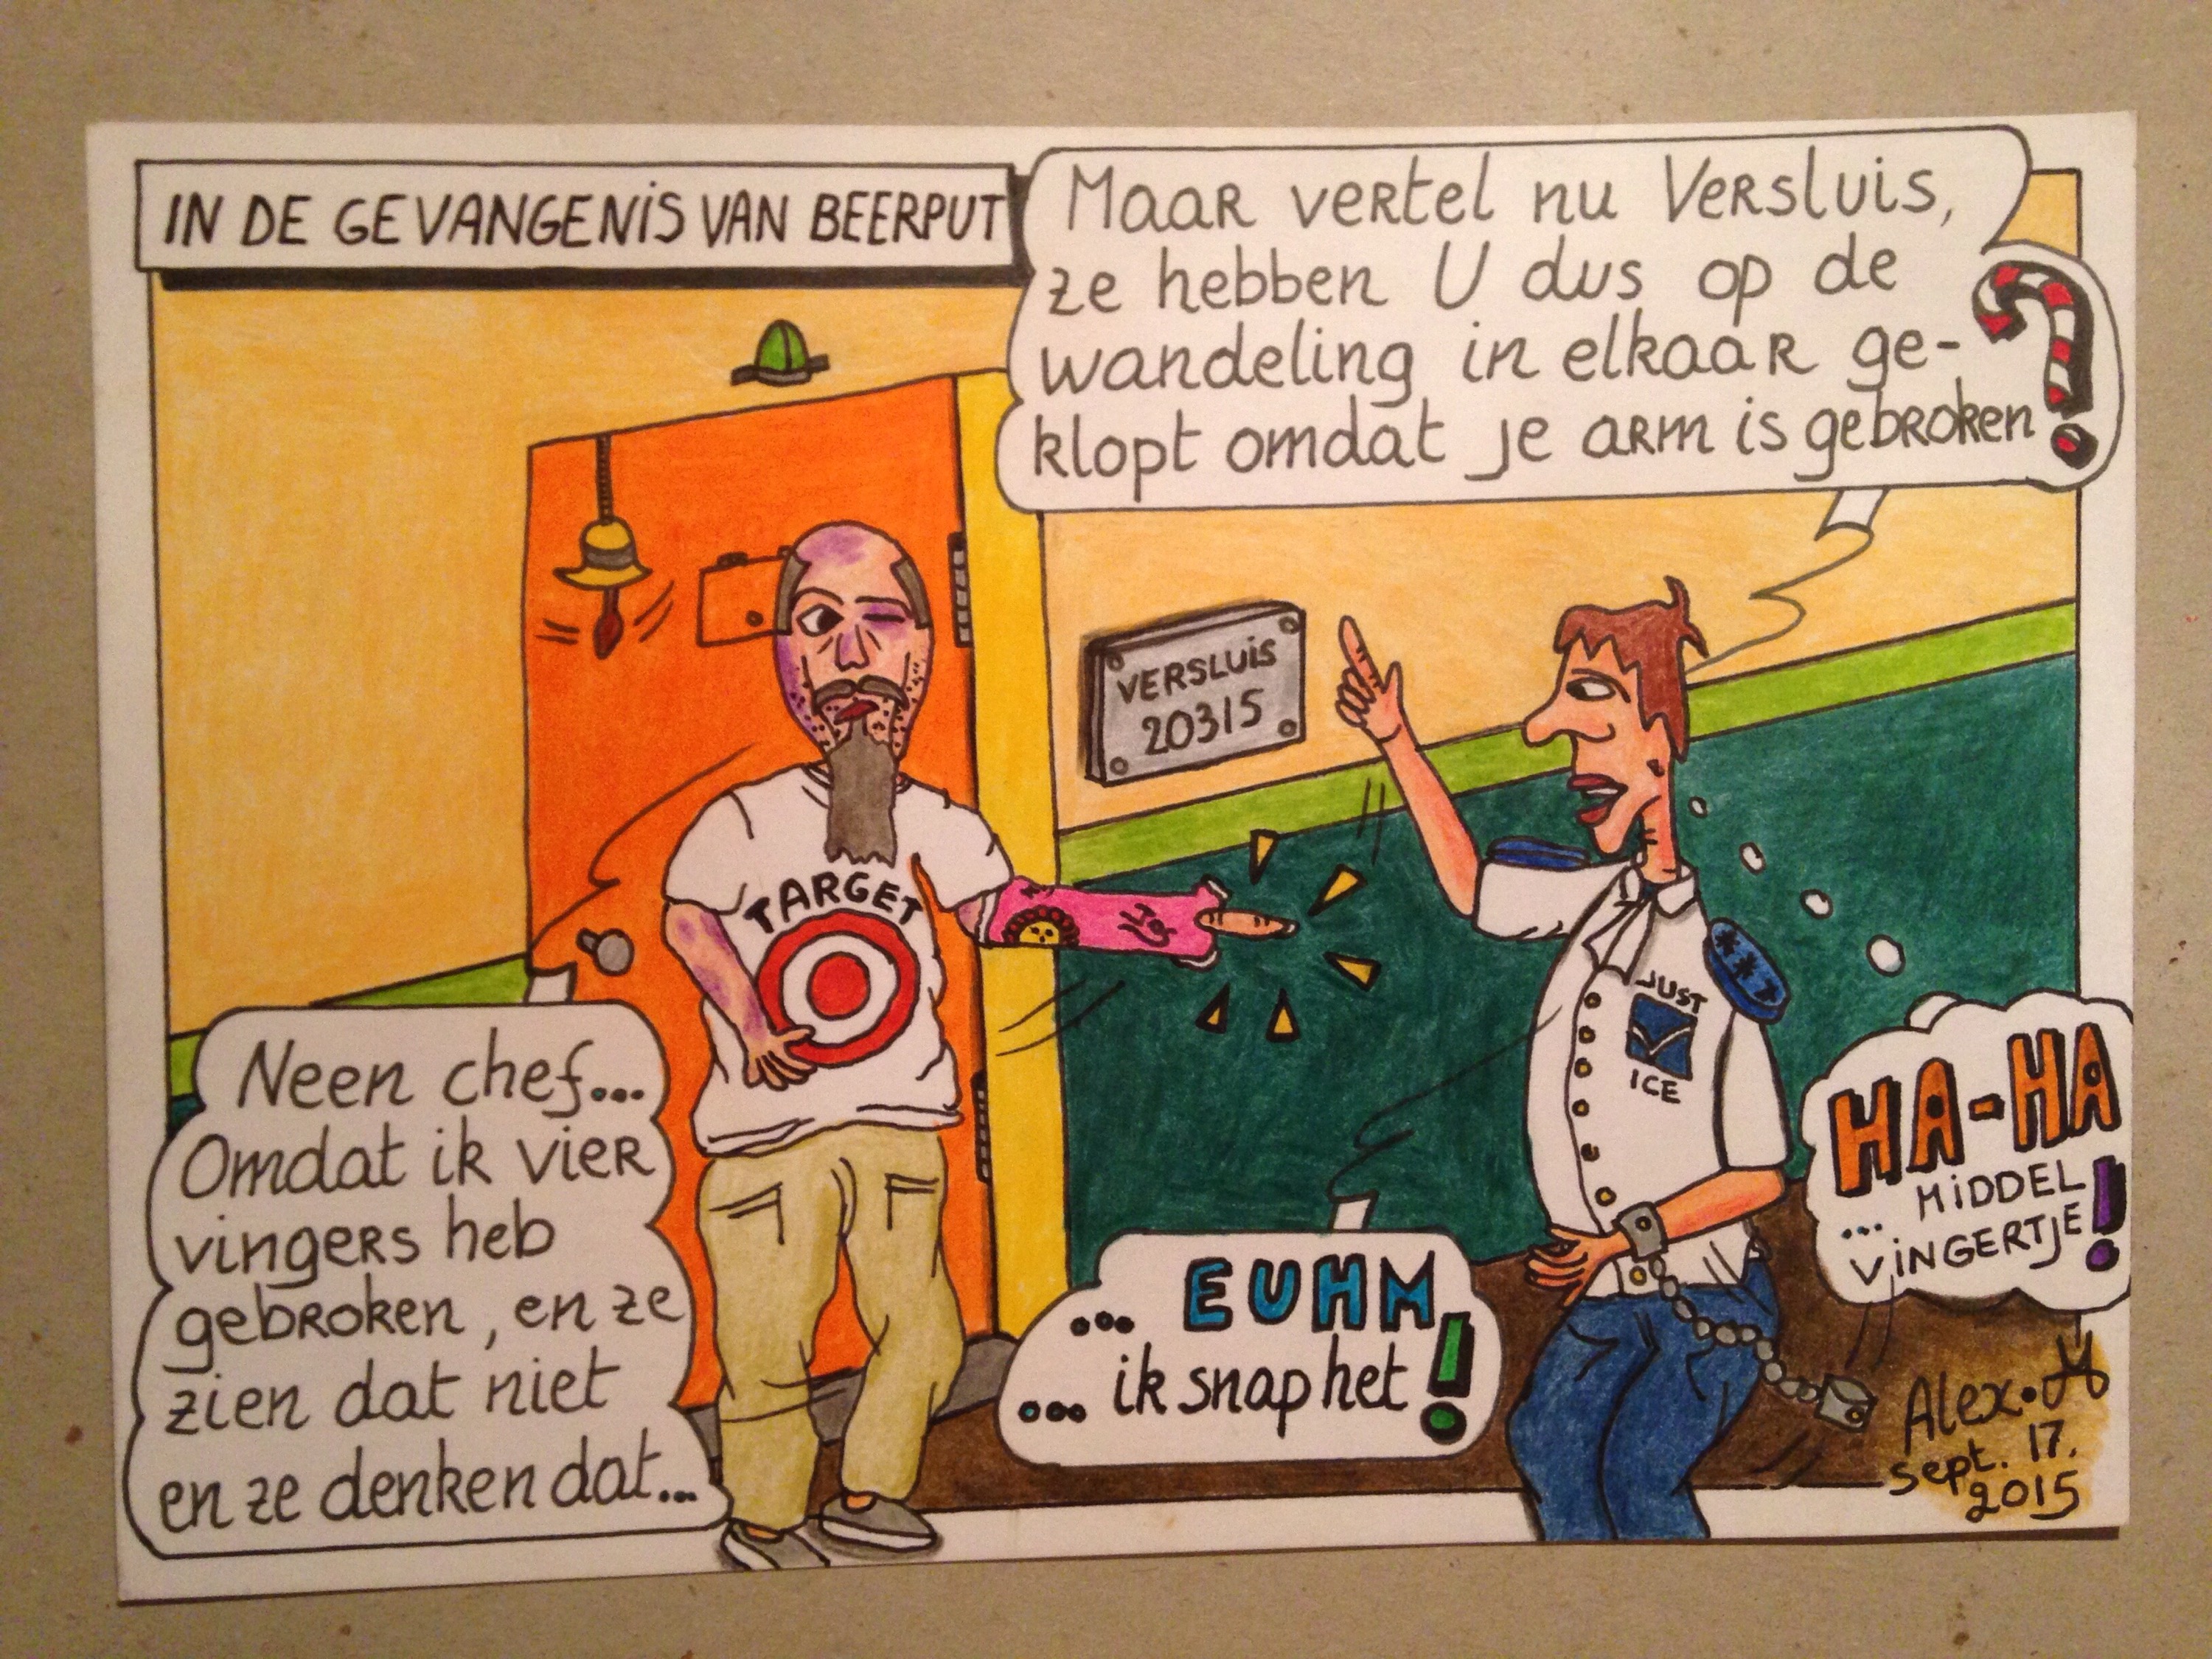 IN DE GEVANGENIS VAN BEERPUT
Maar vertel nu Versluis,
ze hebben U dus op de
wandeling in elkaar ge-
klopt omdat je arm is gebroken?
VERSLUIS
20315
TARGET
JUST
ICE
Neen chef...
Omdat ik vier
vingers heb
gebroken, en ze
zien dat niet
en ze denken dat...
... EUHM
... ik snap het!
HA-HA
... MIDDEL
VINGERTJE!
Alex.M
sept. 17.
2015